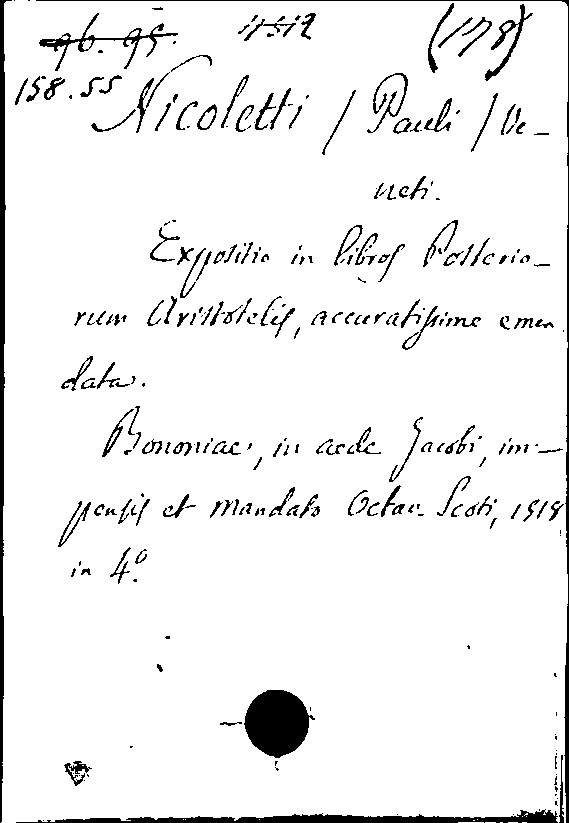 96. 95. 4512 (178)
158.55
Nicoletti / Pauli / Ve-
neti.
Expositio in libros Posterio-
rum Aristotelis, accuratissime emen
data.
Bononiae, in aede Jacobi, im-
pensis et mandato Octav. Scoti, 1518
in 4º